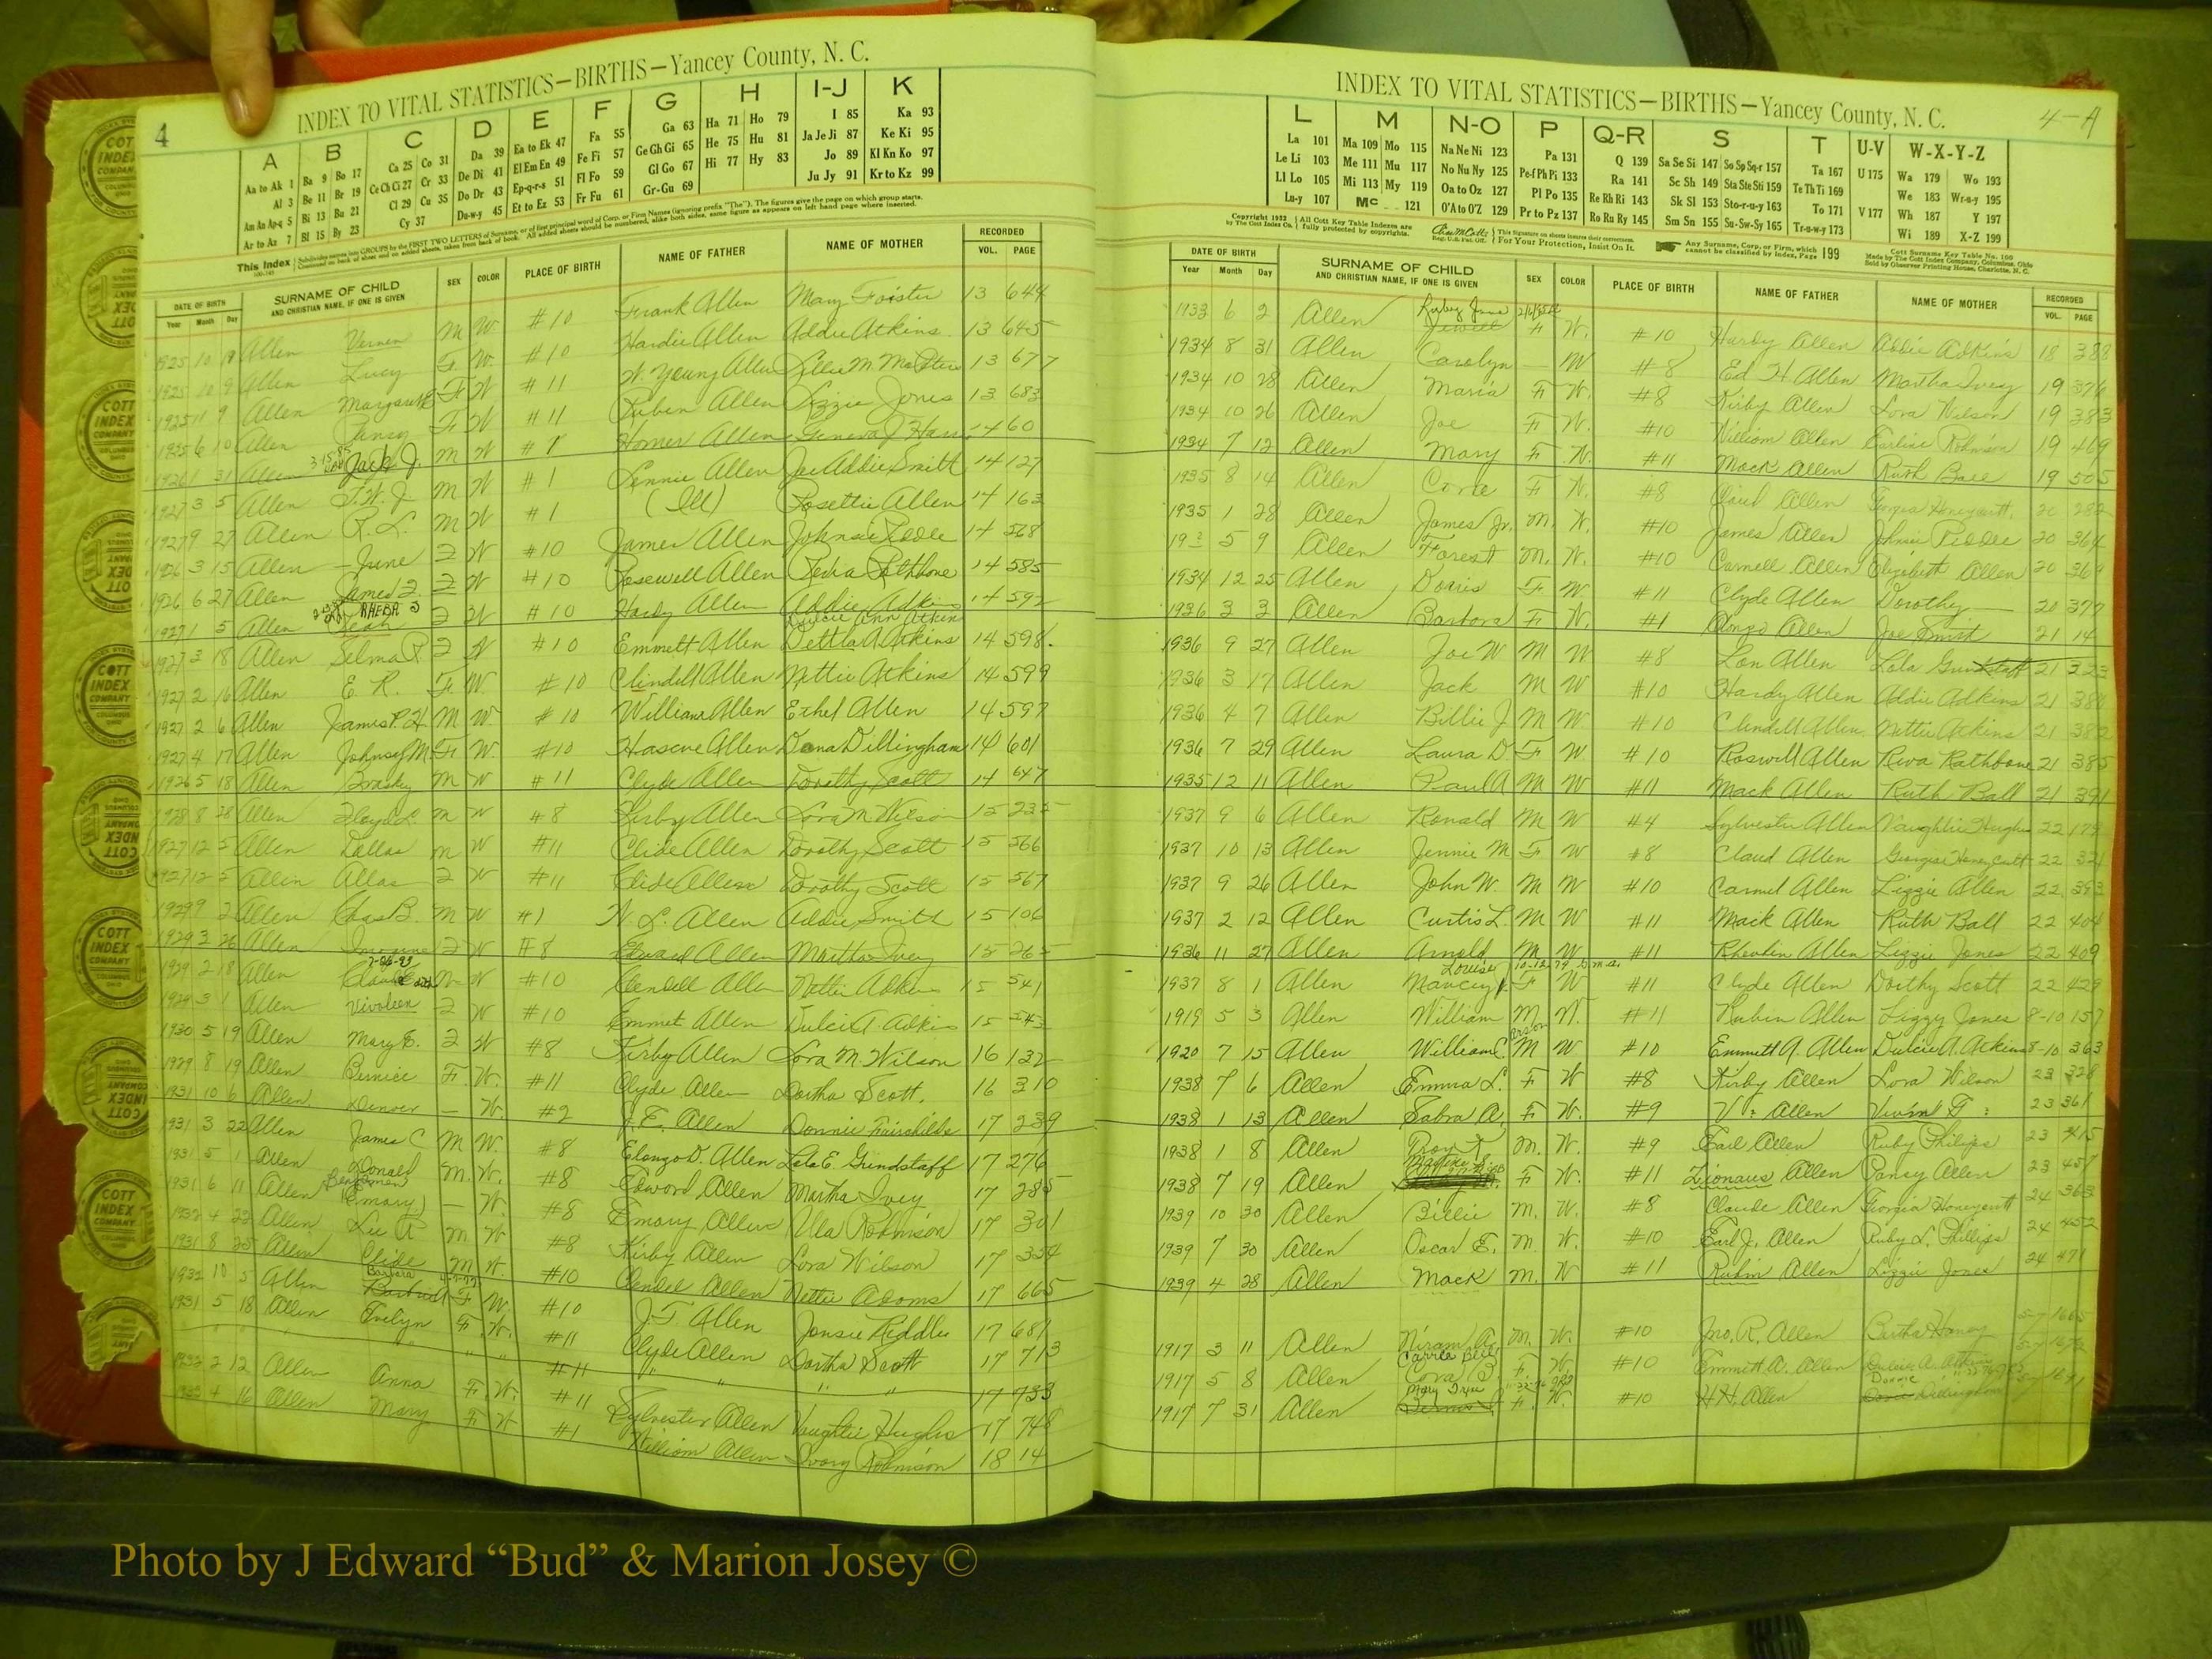 4
INDEX TO VITAL STATISTICS—BIRTHS—Yancey County, N. C.
A B C D E F G H I-J K
Aa to Ak 1 Ba 9 Bo 17 Ca 25 Co 31 Da 39 Ea to Ek 47 Fa 55 Ga 63 Ha 71 Ho 79 I 85 Ka 93
Al 3 Be 11 Br 19 Ce Ch Ci 27 Cr 33 De Di 41 El Em En 49 Fe Fi 57 Ge Gh Gi 65 He 75 Hu 81 Ja Je Ji 87 Ke Ki 95
Am An Ap-q 5 Bi 13 Bu 21 Cl 29 Cu 35 Do Dr 43 Ep-q-r-s 51 Fl Fo 59 Gl Go 67 Hi 77 Hy 83 Jo 89 Kl Kn Ko 97
Ar to Az 7 Bl 15 By 23 Cy 37 Du-w-y 45 Et to Ez 53 Fr Fu 61 Gr-Gu 69 Ju Jy 91 Kr to Kz 99
DATE OF BIRTH SURNAME OF CHILD SEX COLOR PLACE OF BIRTH NAME OF FATHER NAME OF MOTHER RECORDED
Year Month Day AND CHRISTIAN NAME, IF ONE IS GIVEN VOL. PAGE
1925 10 Allen Vernon M W. #10 Frank Allen Mary Foister 13 644
1925 10 9 Allen Lucy F W. #10 Hardie Allen Addie Atkins 13 645
1925 11 9 Allen Margaret F W #11 W. Young Allen 13 677
1925 6 10 Allen Pansy F W #11 Rubin Allen Lizzie Jones 13 683
1926 1 31 Allen Jack J. M W Homer Allen Geneva J 14 60
1927 3 5 Allen J.W.J. M W #1 Lennie Allen Joe Addie Smith 14 127
1927 9 27 Allen R. L. M W #1 (Ill) Rosettie Allen 14 163
1926 3 15 Allen — June F W #10 James Allen 14 568
1926 6 27 Allen James F W #10 Rosewell Allen Reva Rathbone 14 585
1927 1 5 Allen RHEBA J F W #10 Hardy Allen Addie Adkins 14 592
1927 3 18 Allen Selma R F W #10 Emmett Allen Atkins 14 598
1927 2 16 Allen E. R. F W. #10 Clindell Allen Nettie Atkins 14 599
1927 2 6 Allen James P. H M W. #10 William Allen Ethel Allen 14 597
1927 4 17 Allen Johnsy M. F W. #10 Hascue Allen Dona Dillingham 14 601
1926 5 18 Allen M W #11 Clyde Allen Dorothy Scott 14 647
1928 8 28 Allen Floyd L. M W #8 Kirby Allen Lora M Wilson 15 235
1927 12 5 Allen Dallas M W #11 Clide Allen Dorothy Scott 15 566
1927 12 5 Allen Allas F W #11 Clide Allen Dorothy Scott 15 567
1929 9 2 Allen Chas B. M W #1 N. L. Allen Addie Smith 15 106
1929 3 26 Allen F W #8 Edward Allen Martha Ivey 15 265
1929 2 18 Allen M W #10 Clendell Allen Nettie Adkins 15 541
1929 3 1 Allen Vivoleen F W #10 Emmet Allen Dulci A. Adkis 15 543
1930 5 19 Allen Mary E. F W #8 Kirby Allen Lora M. Wilson 16 132
1929 8 19 Allen Bernice F W. #11 Clyde Allen Dortha Scott. 16 310
1931 10 6 Allen Denver — W. #2 J. E. Allen Donnie Fairchilds 17 239
1931 3 22 Allen James C M W. #8 Elonzo D. Allen Lola E. Grindstaff 17 276
1931 5 1 Allen Donald M. W. #8 Edword Allen Martha Ivey 17 285
1931 6 11 Allen (Emary) — W. #8 Emory Allen Ulla Robinson 17 301
1932 4 22 Allen Lee R M W #8 Kirby Allen Lora Wilson 17 334
1931 8 25 Allen Clide M W. #10 Clendel Allen Nettie Adoms 17 665
1932 10 5 Allen Barbara F W. #10 J. F. Allen Jonsie Riddle 17 681
1931 5 18 Allen Evelyn F. W. #11 Clyde Allen Dortha Scott 17 713
" " " #11 " " " " 17 733
1932 2 12 Allen Anna F. W. #11 Sylvester Allen Vaughtie Hughs 17 748
4 16 Allen Mary F W #1 William Allen Ivory Robinson 18 14
INDEX TO VITAL STATISTICS—BIRTHS—Yancey County, N. C.
4-A
L M N-O P Q-R S T U-V W-X-Y-Z
La 101 Ma 109 Mo 115 Na Ne Ni 123 Pa 131 Q 139 Sa Se Si 147 So Sp Sq-r 157 Ta 167 U 175 Wa 179 Wo 193
Le Li 103 Me 111 Mu 117 No Nu Ny 125 Pe-f Ph Pi 133 Ra 141 Sc Sh 149 Sta Ste Sti 159 Te Th Ti 169 We 183 Wr-u-y 195
Ll Lo 105 Mi 113 My 119 Oa to Oz 127 Pl Po 135 Re Rh Ri 143 Sk Sl 153 Sto-r-u-y 163 To 171 V 177 Wh 187 Y 197
Lu-y 107 Mc 121 O'A to O'Z 129 Pr to Pz 137 Ro Ru Ry 145 Sm Sn 155 Su-Sw-Sy 165 Tr-u-w-y 173 Wi 189 X-Z 199
Any Surname, Corp. or Firm, which cannot be classified by Index, Page 199
DATE OF BIRTH SURNAME OF CHILD SEX COLOR PLACE OF BIRTH NAME OF FATHER NAME OF MOTHER RECORDED
Year Month Day AND CHRISTIAN NAME, IF ONE IS GIVEN VOL. PAGE
1933 6 2 Allen Ruby Jane F W. #10 Hardy Allen Addie Adkins 18 388
1934 8 31 Allen Carolyn — W #8 Ed. H Allen Martha Ivey 19 376
1934 10 28 Allen Maria F W. #8 Kirby Allen Lora Wilson 19 383
1934 10 26 Allen Joe F W. #10 William Allen Robinson 19 469
1934 7 12 Allen Mary F W. #11 Mack Allen Ruth Ball 19 505
1935 8 14 Allen F W. #8 Claud Allen Georgia Honeycutt 20 282
1935 1 28 Allen James Jr. M. W. #10 James Allen Johnsie Riddle 20 364
5 9 Allen Forest M. W. #10 Carnell Allen Elizabeth Allen 20 369
1934 12 25 Allen Doris F W. #11 Clyde Allen Dorothy — 20 377
1936 3 3 Allen Barbara F W. #1 Alonzo Allen Joe Smith 21 14
1936 9 27 Allen Joe W M W #8 Lon Allen Lola Grindstaff 21 323
1936 3 17 Allen Jack M W #10 Hardy Allen Addie Adkins 21 380
1936 4 7 Allen Billie J M W. #10 Clendell Allen Nettie Atkins 21 382
1936 7 29 Allen Laura D F W. #10 Roswell Allen Reva Rathbone 21 385
1935 12 11 Allen Paul A M W #11 Mack Allen Ruth Ball 21 391
1937 9 6 Allen Ronald M W #4 Sylvester Allen Vaughtie Hughs 22 179
1937 10 13 Allen Jennie M F W #8 Claud Allen Georgia Honeycutt 22 321
1937 9 26 Allen John W. M W #10 Carmel Allen Lizzie Allen 22 393
1937 2 12 Allen Curtis L. M W #11 Mack Allen Ruth Ball 22 404
1936 11 27 Allen Arnold M W #11 Rheubin Allen Lizzie Jones 22 409
Louise 10-12-79
1937 8 1 Allen Nancy F W #11 Clyde Allen Dorthy Scott 22 429
1919 5 3 Allen William M W. #11 Rubin Allen Lizzy Jones 8-10 157
1920 7 15 Allen William C. M W #10 Emmett A. Allen Dulcie A. Atkins 8-10 363
1938 7 6 Allen Emma L. F W #8 Kirby Allen Lora Wilson 23 328
1938 1 13 Allen Sabra A. F W. #9 V : Allen 23 361
1938 1 8 Allen Roy T M. W. #9 Earl Allen Ruby Philips 23 415
1938 7 19 Allen F W. #11 Zionaus Allen Pansy Allen 23 457
1939 10 30 Allen Billie M. W. #8 Claude Allen Georgia Honeycutt 24 363
1939 7 30 Allen Oscar E. M. W. #10 Earl J. Allen Ruby L. Phillips 24 452
1939 4 28 Allen Mack M. W #11 Rubin Allen Lizzie Jones 24 471
1917 3 11 Allen Niram A. M. W. #10 Jno. R. Allen Bertha Honey
Carrie Bell
1917 5 8 Allen Cora B F W. #10 Emmett A. Allen
1917 7 31 Allen F. W. #10 H.H. Allen Dillingham
Photo by J Edward “Bud” & Marion Josey ©